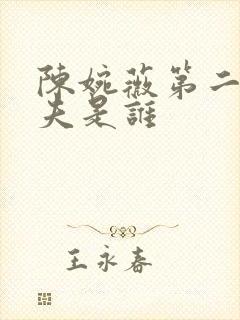 陳婉薇第二
夫是誰
王永春